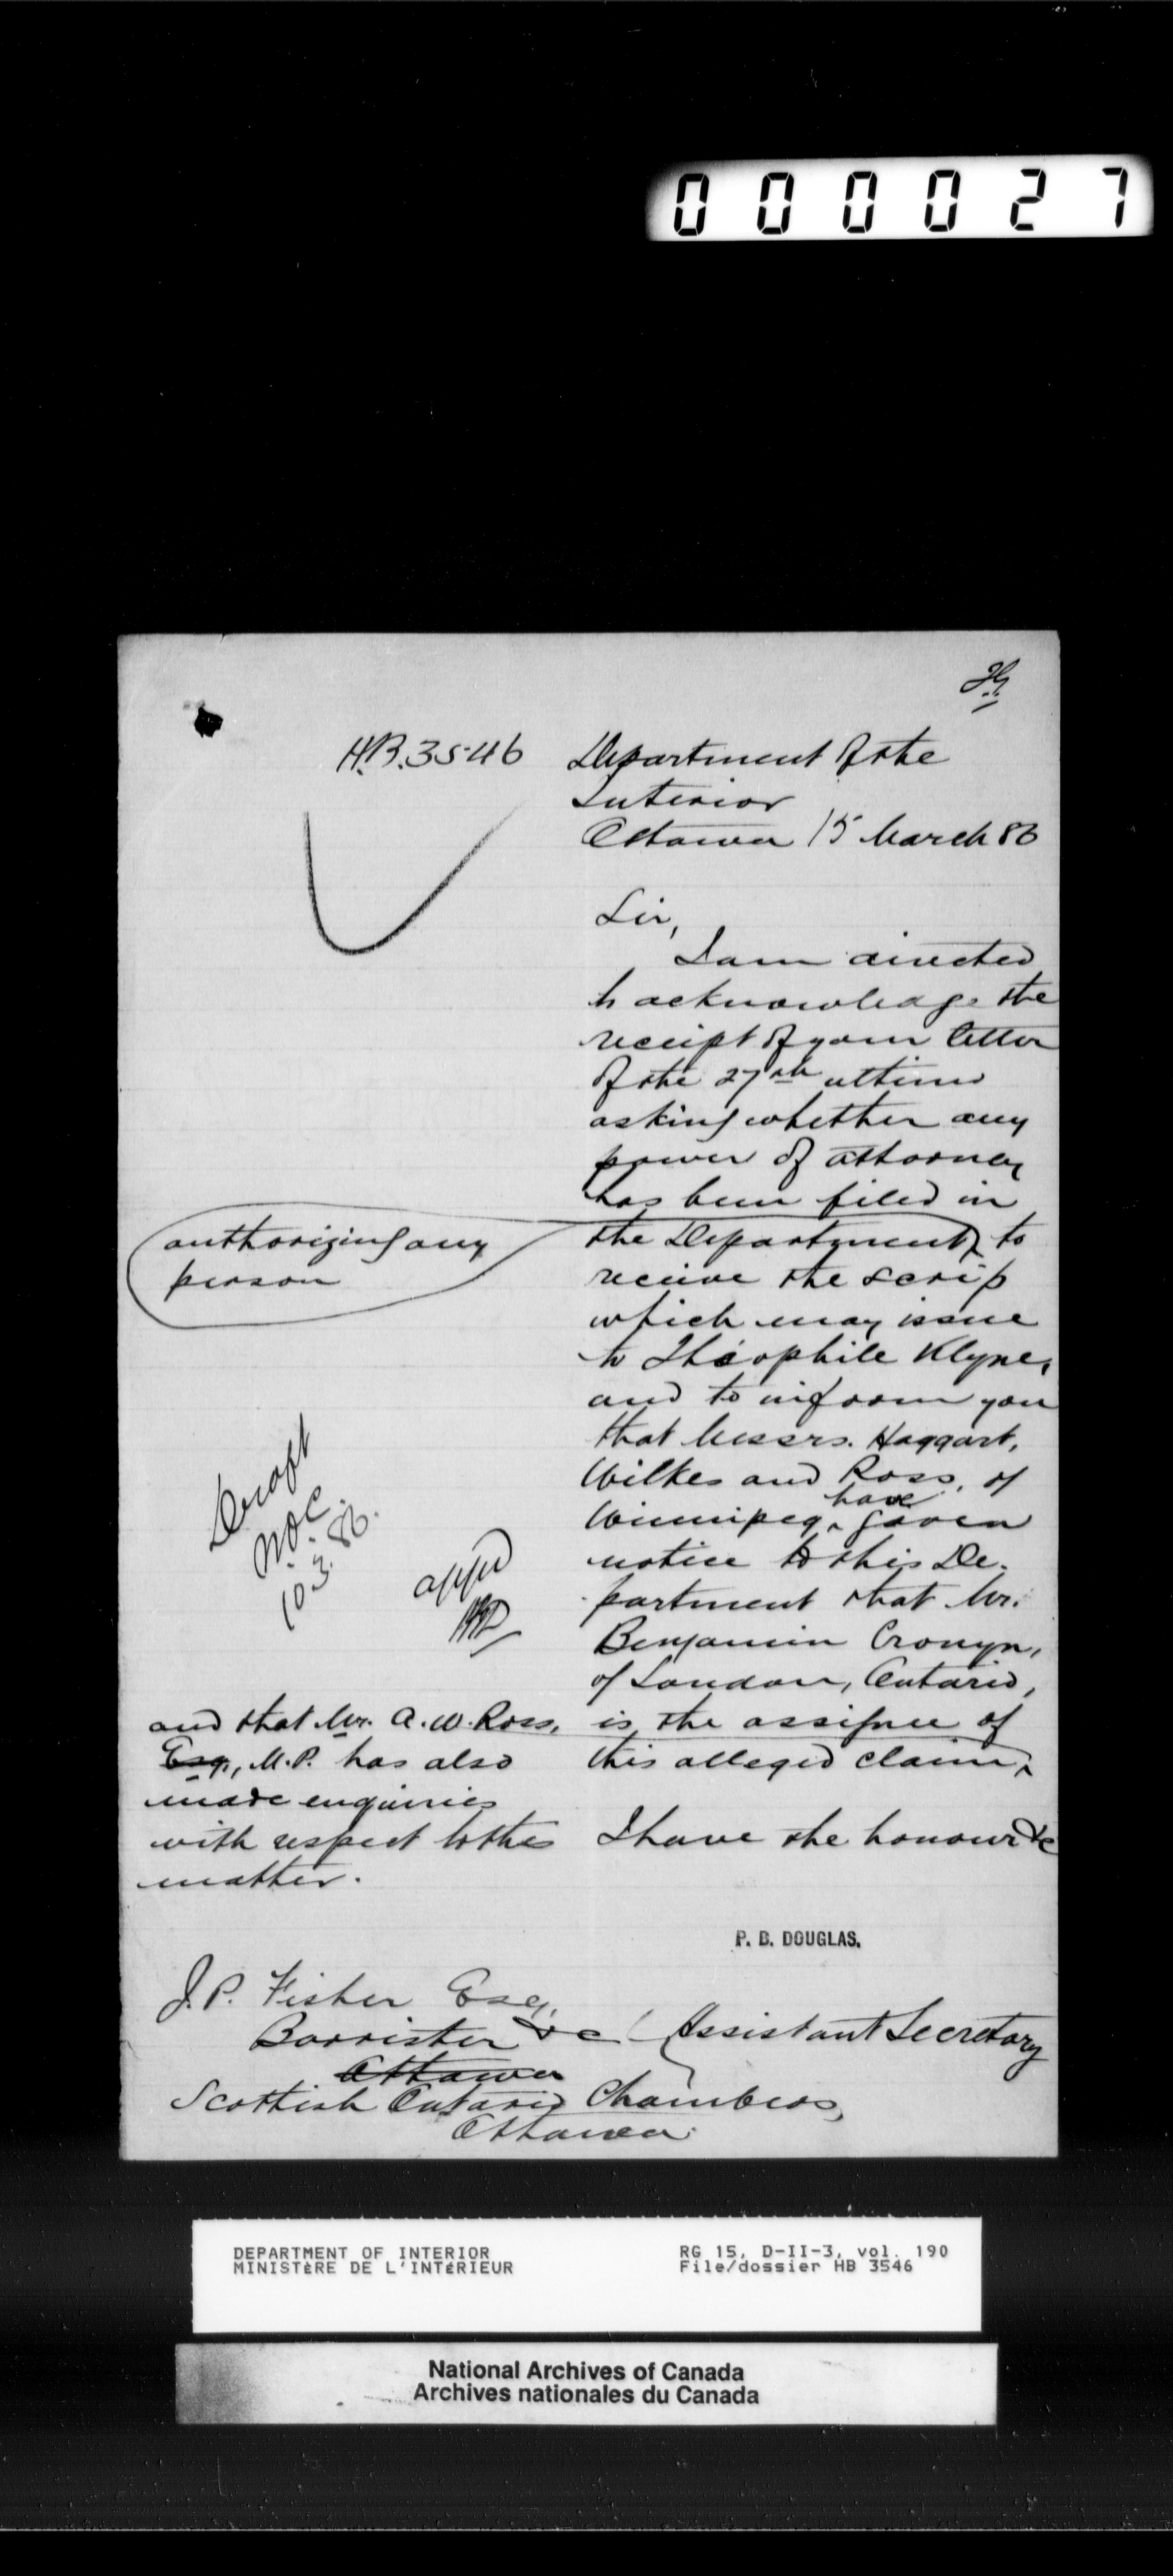 000027
H.B. 3546
Department of the
Interior
Ottawa 15 March 86
Sir,
I am directed
to acknowledge the
receipt of your letter
of the 27th ultimo
asking whether any
power of attorney
has been filed in
the Department to
authorizing any
person
receive the scrip
which may issue
to Théophile Klyne,
and to inform you
that Messrs. Haggart,
Wilkes and Ross, of
have
Winnipeg, given
notice to this De-
partment that Mr.
Benjamin Cronyn,
of London, Ontario,
is the assignee of
this alleged claim,
and that Mr. A. W. Ross,
Esq., M.P. has also
made enquiries
with respect to this
matter.
I have the honour &c
Draft
10.3.86.
appd
P. B. DOUGLAS.
Assistant Secretary
J. P. Fisher Esq,
Barrister &c
Ottawa
Scottish Ontario Chambers,
Ottawa.
DEPARTMENT OF INTERIOR
MINISTÈRE DE L'INTÉRIEUR
RG 15, D-II-3, vol. 190
File/dossier HB 3546
National Archives of Canada
Archives nationales du Canada